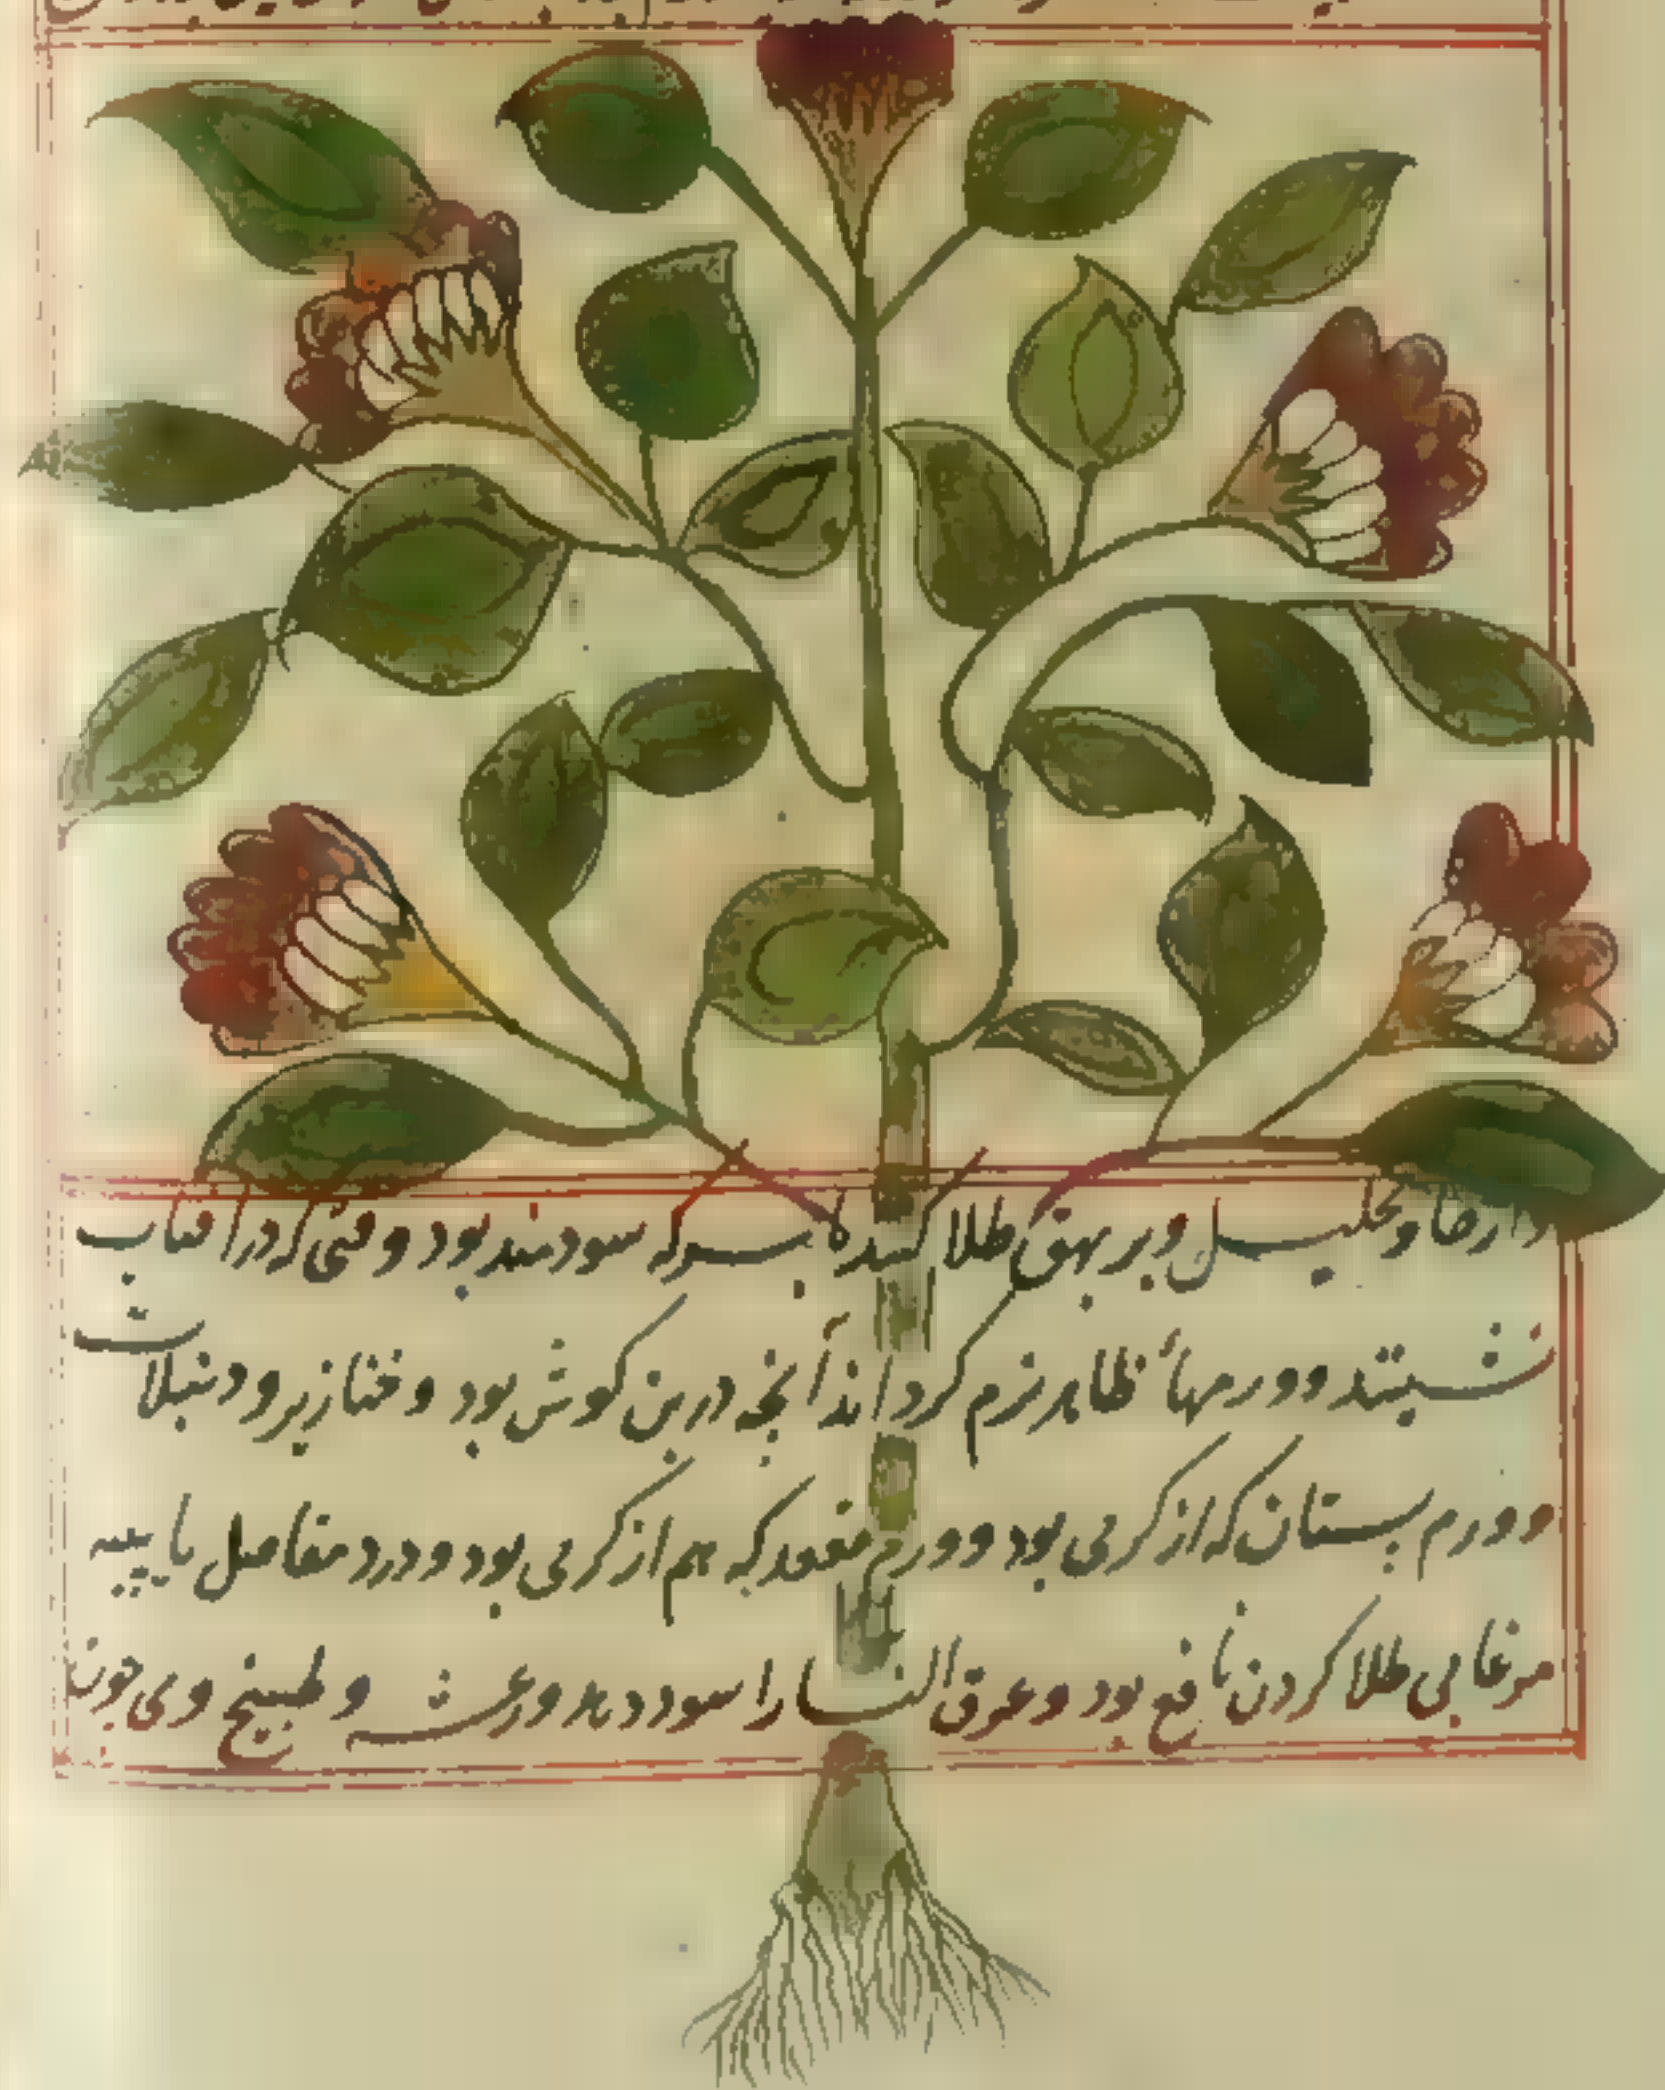 وتحلیل وبر بهق طلا کننده بسرکه سودمند بود وقتی که در آفتاب
نشینند و ورمهاء ظاهر نرم کرداند آنچه در بن کوش بود و خنازیر و دنبلات
و ورم پستان که از کرمی بود و ورم مقعد که هم از کرمی بود و درد مفاصل با پیه
مرغابی طلا کردن نافع بود و عرق النسا را سود دهد و رعشه و طبیخ وی چون